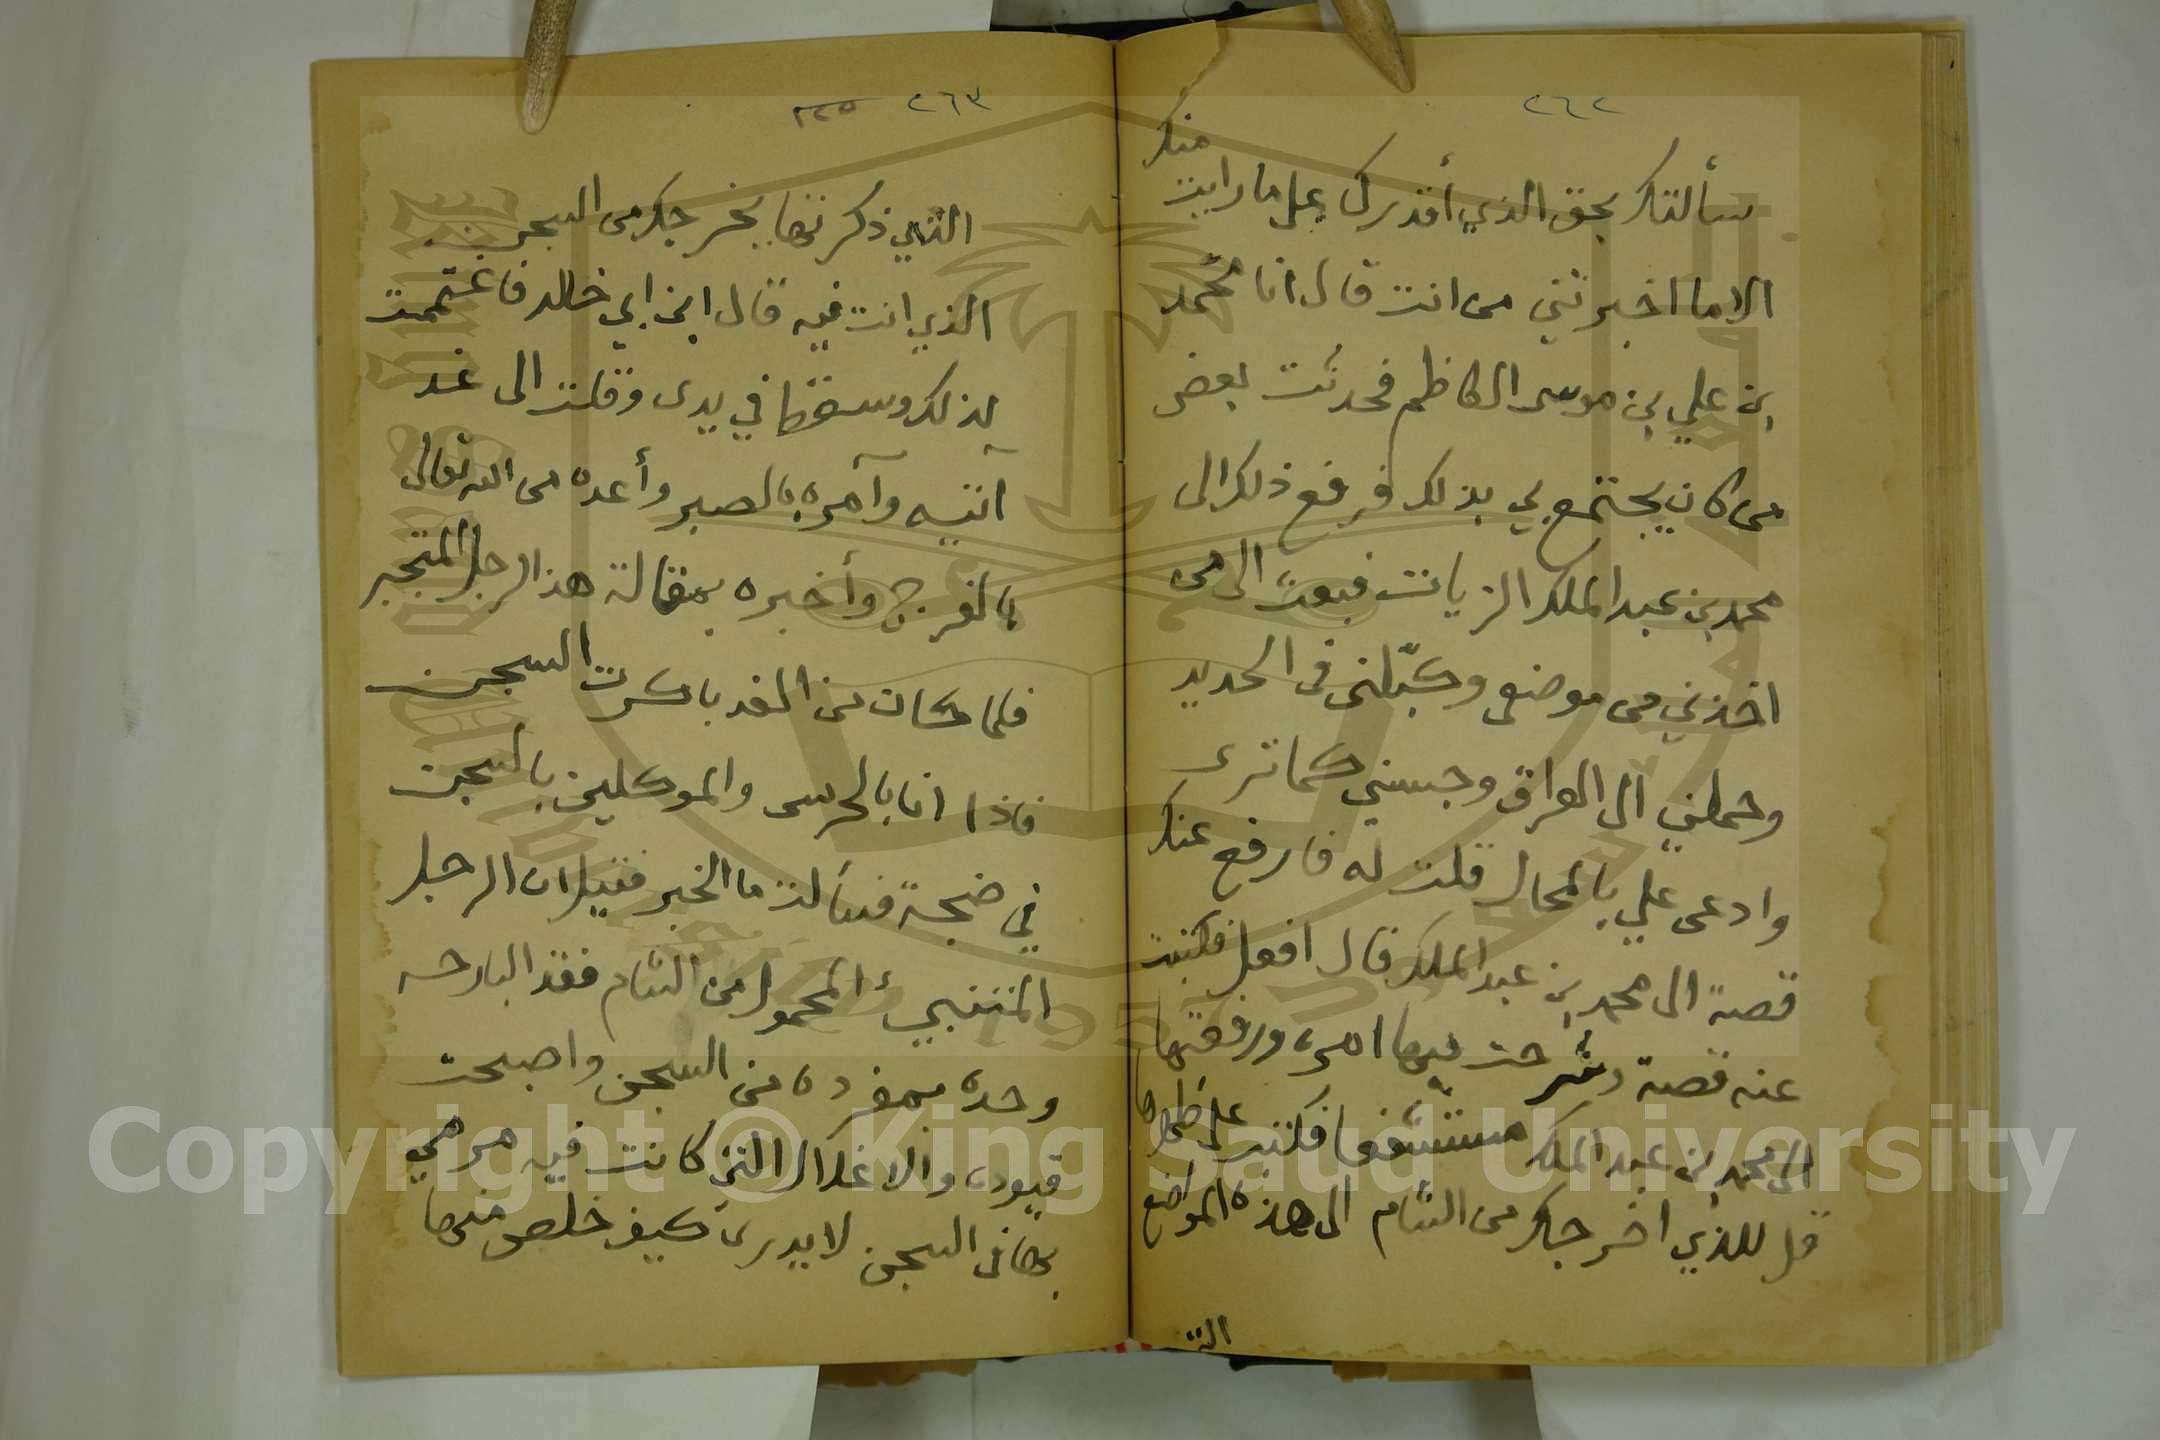 ٢٦٢
سألتك بحق الذي أقدرك على ما رايت منك
الاما اخبرتني من انت قال انا محمد
بن علي بن موسى الكاظم فحدثت بعض
من كان يجتمع بي بذلك فرفع ذلك الى
محمد بن عبد الملك الزيات فبعث الى من
اخذني من موضعي وكبّلني في الحديد
وحملني الى العراق وحبسني كما ترى
وادعى علي بالمحال قلت له فارفع عنك
قصة الى محمد بن عبد الملك قال افعل فكتبت
عنه قصة وشرحت فيها امره ورفعتها
الى محمد بن عبد الملك فكتب على ظهرها
قل للذي اخرجك من الشام الى هذه المواضع
التي
٢٦٣
التي ذكرتها يخرجك من السجن
الذي انت فيه قال ابن ابي خالد فاغتممت
لذلك وسقط في يدى وقلت الى غد
آتيه وآمره بالصبر وأعده من الله تعالى
بالفرج وأخبره بمقالة هذا الرجل المتجبر
فلما كان من الغد باكرت السجن
فاذا انا بالحرس والموكلين بالسجن
في ضجة فسألت ما الخبر فقيل ان الرجل
المتنبيء المحمول من الشام فقد البارحه
وحده بمفرده من السجن واصبحت
قيوده والاغلال التي كانت فيه مرمي
بها في السجن لا يدرى كيف خلص منها
Copyright © King Saud University
1957